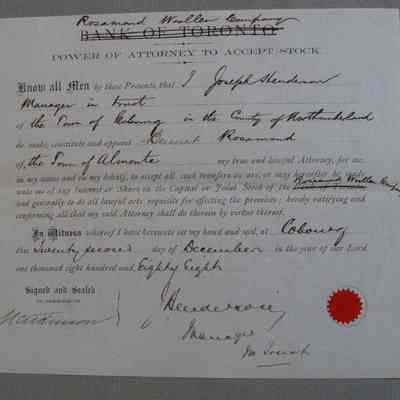 Rosamond Woollen Company
BANK OF TORONTO
POWER OF ATTORNEY TO ACCEPT STOCK.
Know all Men by these Presents, that I Joseph Henderson
Manager in trust
of the Town of Cobourg in the County of Northumberland
do make, constitute and appoint Bennet Rosamond
of the Town of Almonte my true and lawful Attorney, for me,
in my name and on my behalf, to accept all such transfers as are, or may hereafter be made
unto me of any Interest or Share in the Capital or Joint Stock of the Rosamond Woollen Company
and generally to do all lawful acts requisite for effecting the premises; hereby ratifying and
confirming all that my said Attorney shall do therein by virtue thereof.
In Witness whereof I have hereunto set my hand and seal, at Cobourg
the Twenty second day of December in the year of our Lord
one thousand eight hundred and Eighty Eight
Signed and Sealed
IN PRESENCE OF
J Henderson
Manager
In Trust